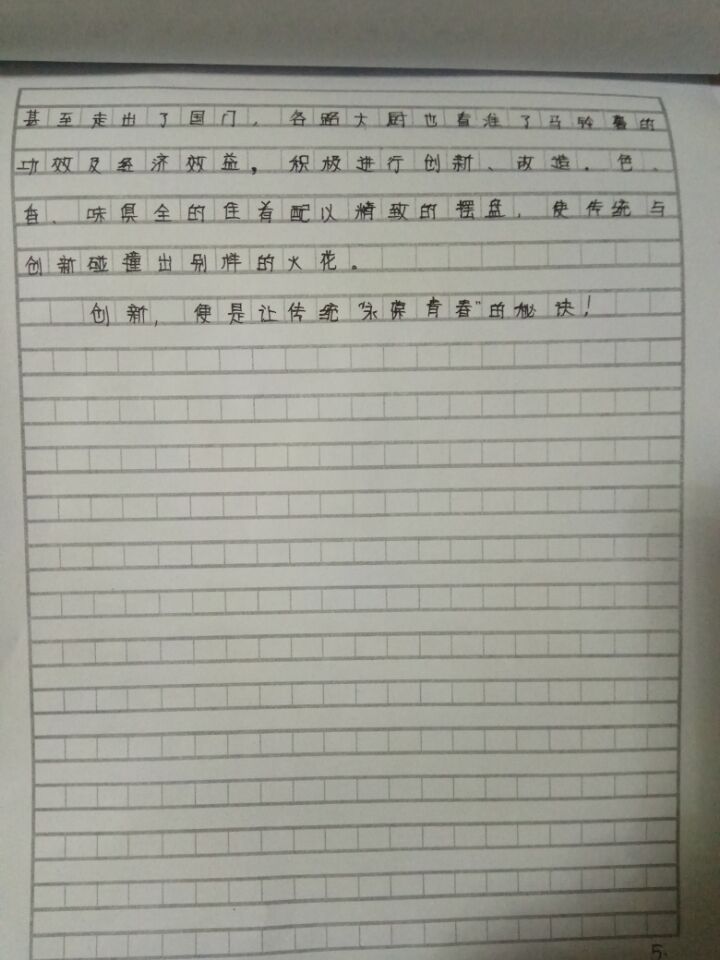 甚至走出了国门，各路大厨也看准了马铃薯的
功效及经济效益，积极进行创新、改造。色、
香、味俱全的佳肴配以精致的摆盘，使传统与
创新碰撞出别样的火花。
创新，便是让传统“永葆青春”的秘诀！
5.